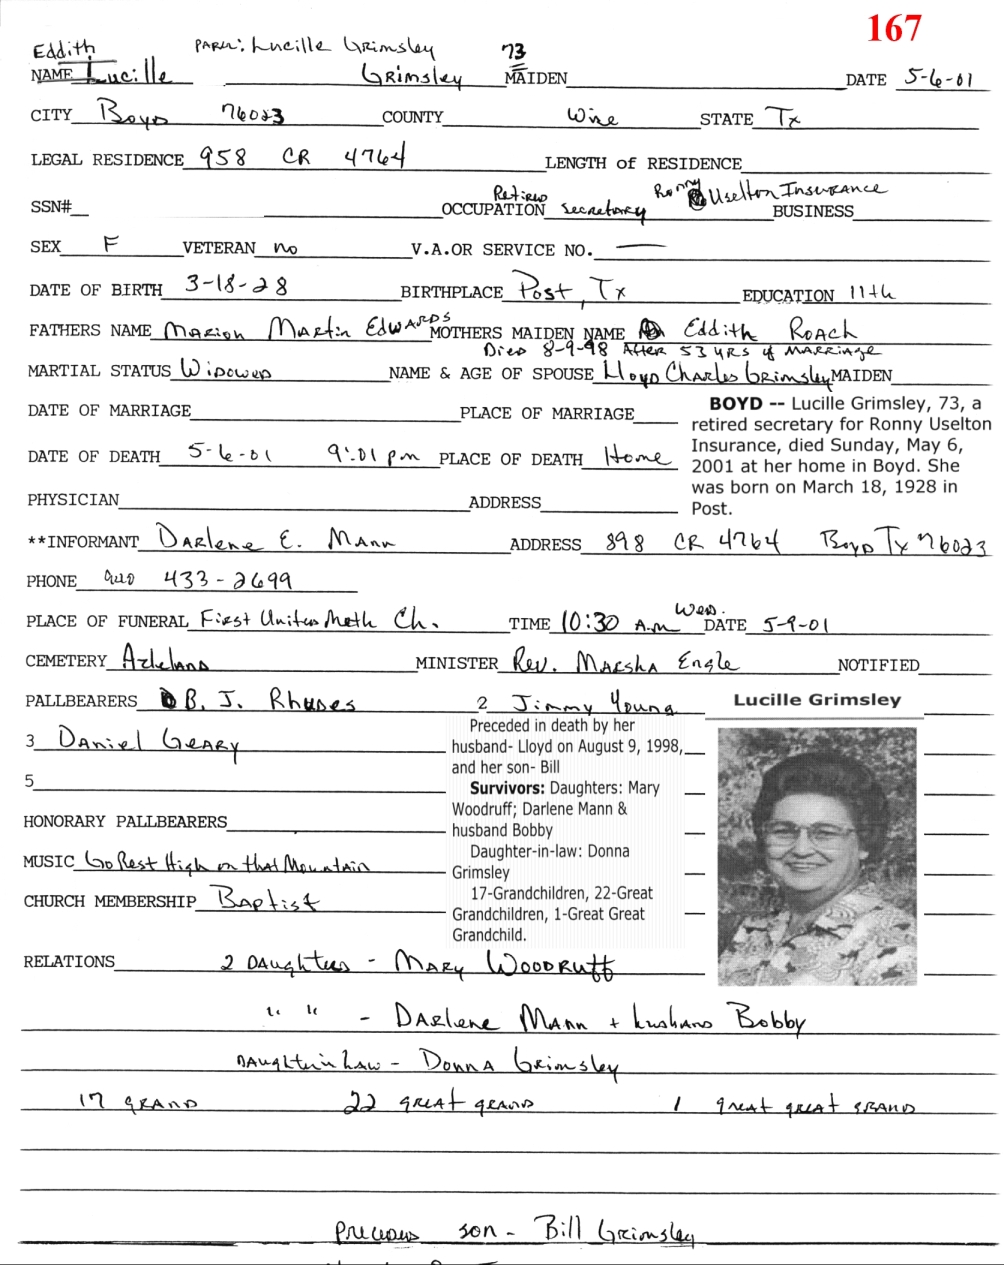 167
Eddith PAPER: Lucille Grimsley 73
NAME Lucille Grimsley MAIDEN DATE 5-6-01
CITY Boyd 76023 COUNTY Wise STATE Tx
LEGAL RESIDENCE 958 CR 4764 LENGTH of RESIDENCE
Retired Ronny Uselton Insurance
SSN# OCCUPATION Secretary BUSINESS
SEX F VETERAN no V.A.OR SERVICE NO. —
DATE OF BIRTH 3-18-28 BIRTHPLACE Post, Tx EDUCATION 11th
FATHERS NAME Marion Martin Edwards MOTHERS MAIDEN NAME Eddith Roach
Died 8-9-98 After 53 yrs of marriage
MARTIAL STATUS Widowed NAME & AGE OF SPOUSE Lloyd Charles Grimsley MAIDEN
DATE OF MARRIAGE PLACE OF MARRIAGE
BOYD -- Lucille Grimsley, 73, a
retired secretary for Ronny Uselton
Insurance, died Sunday, May 6,
2001 at her home in Boyd. She
was born on March 18, 1928 in
Post.
DATE OF DEATH 5-6-01 9:01 pm PLACE OF DEATH Home
PHYSICIAN ADDRESS
**INFORMANT Darlene E. Mann ADDRESS 898 CR 4764 Boyd Tx 76023
PHONE 433-2699
PLACE OF FUNERAL First United Meth Ch. TIME 10:30 A.m Wed. DATE 5-9-01
CEMETERY Azleland MINISTER Rev. Marsha Engle NOTIFIED
PALLBEARERS B. J. Rhodes 2 Jimmy Young
Lucille Grimsley
3 Daniel Geary
5
Preceded in death by her
husband- Lloyd on August 9, 1998,
and her son- Bill
Survivors: Daughters: Mary
Woodruff; Darlene Mann &
husband Bobby
Daughter-in-law: Donna
Grimsley
17-Grandchildren, 22-Great
Grandchildren, 1-Great Great
Grandchild.
HONORARY PALLBEARERS
MUSIC Go Rest High on that Mountain
CHURCH MEMBERSHIP Baptist
RELATIONS 2 Daughters - Mary Woodruff
" " - Darlene Mann + husband Bobby
Daughter in Law - Donna Grimsley
17 grand 22 great grand 1 great great grand
son - Bill Grimsley